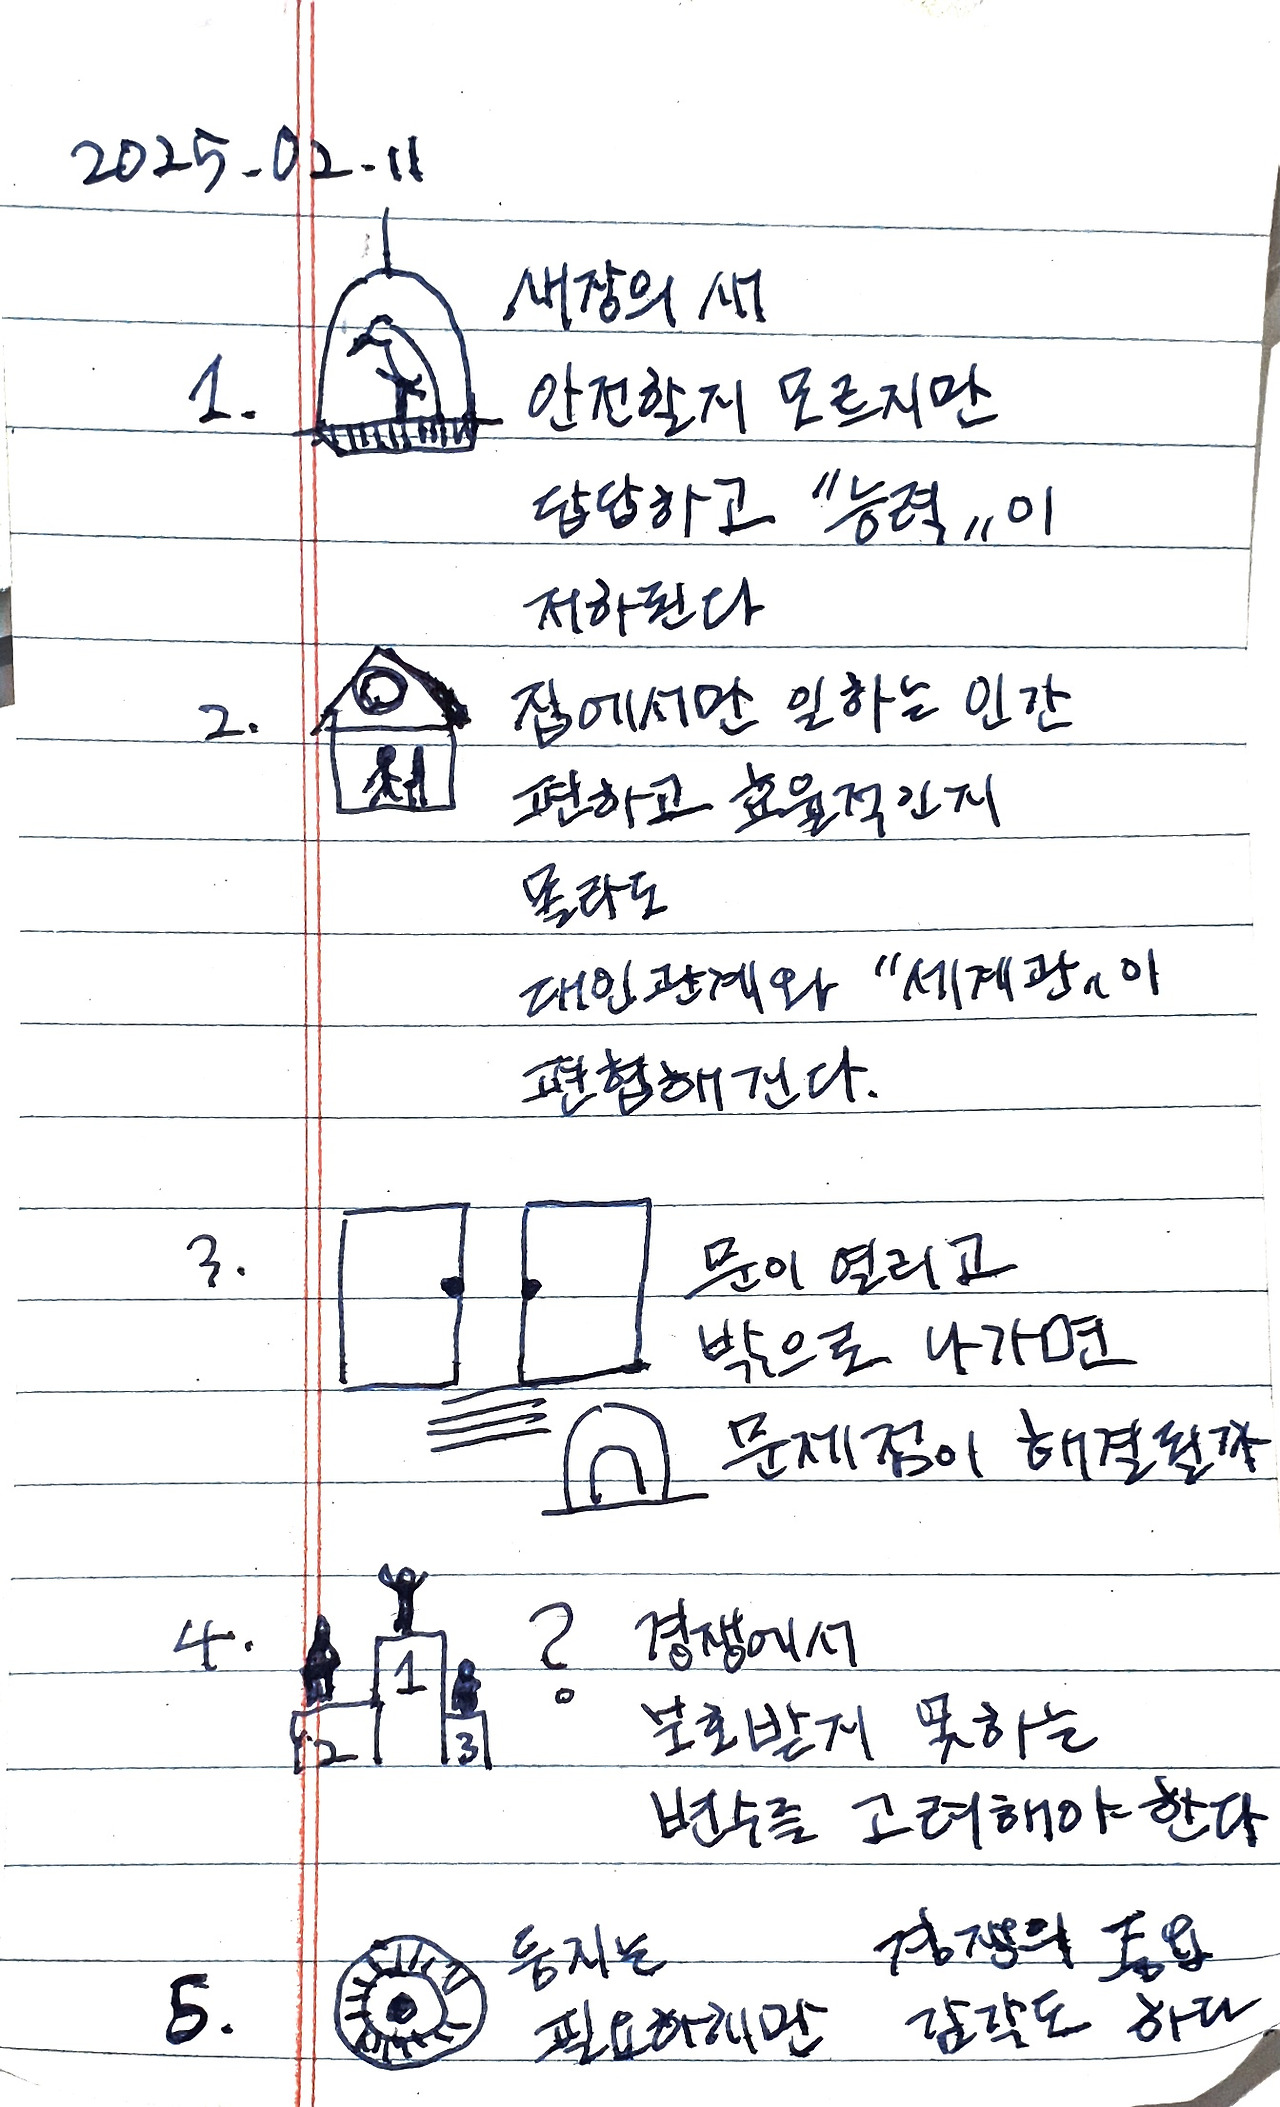 2025-02-11
새장의 새
1. 안전할지 모르지만
답답하고 "능력"이
저하된다
2. 집에서만 일하는 인간
편하고 효율적인지
몰라도
대인관계와 "세계관"이
편협해진다.
3. 문이 열리고
밖으로 나가면
문제점이 해결될까
4. 1 2 3 ? 경쟁에서
보호받지 못하는
변수를 고려해야 한다
5. 둥지는
필요하지만
경쟁의
감각도 하다